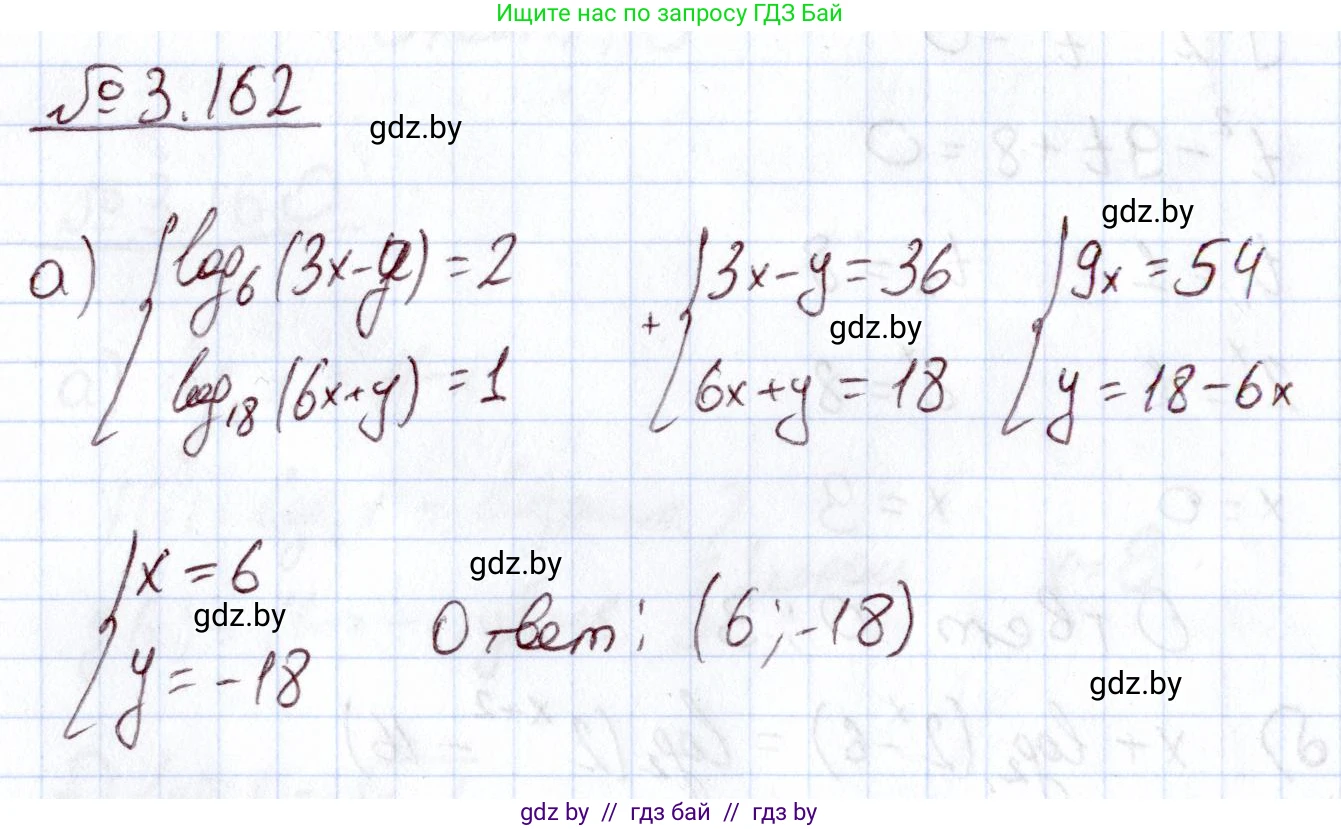 Ищите нас по запросу ГДЗ Бай
№ 3.162
gdz.by
а) { log₆(3x-y) = 2
log₁₈(6x+y) = 1
+ { 3x-y = 36
6x+y = 18
gdz.by
gdz.by
{ 9x = 54
y = 18-6x
{ x = 6
y = -18
gdz.by
gdz.by
Ответ: (6; -18)
gdz.by
gdz.by // гдз бай // гдз by